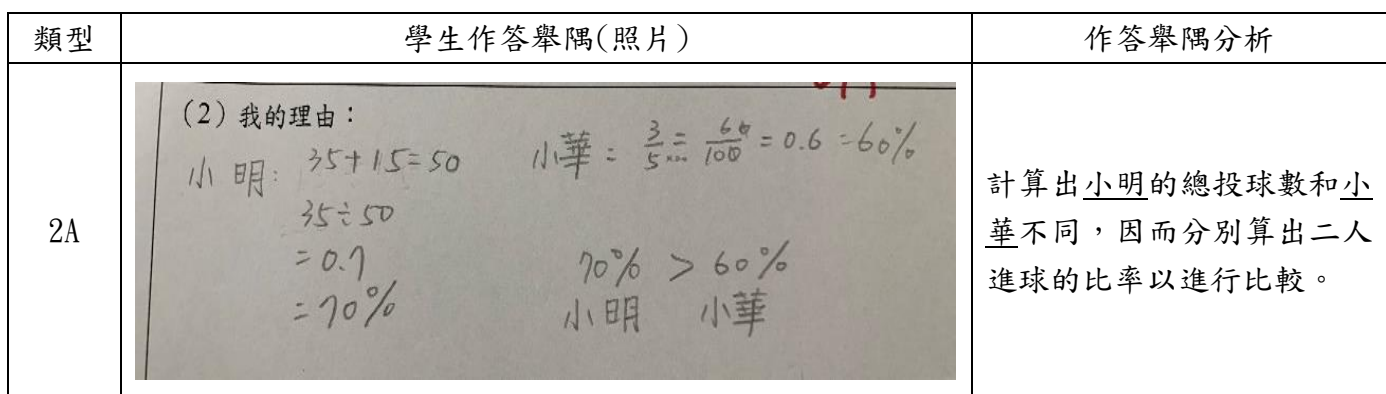 類型 學生作答舉隅(照片) 作答舉隅分析
2A
(2) 我的理由：
小明: 35+15=50
35÷50
=0.7
=70%
小華: 3/5 = 60/100 = 0.6 =60%
70% > 60%
小明 小華
計算出小明的總投球數和小
華不同，因而分別算出二人
進球的比率以進行比較。